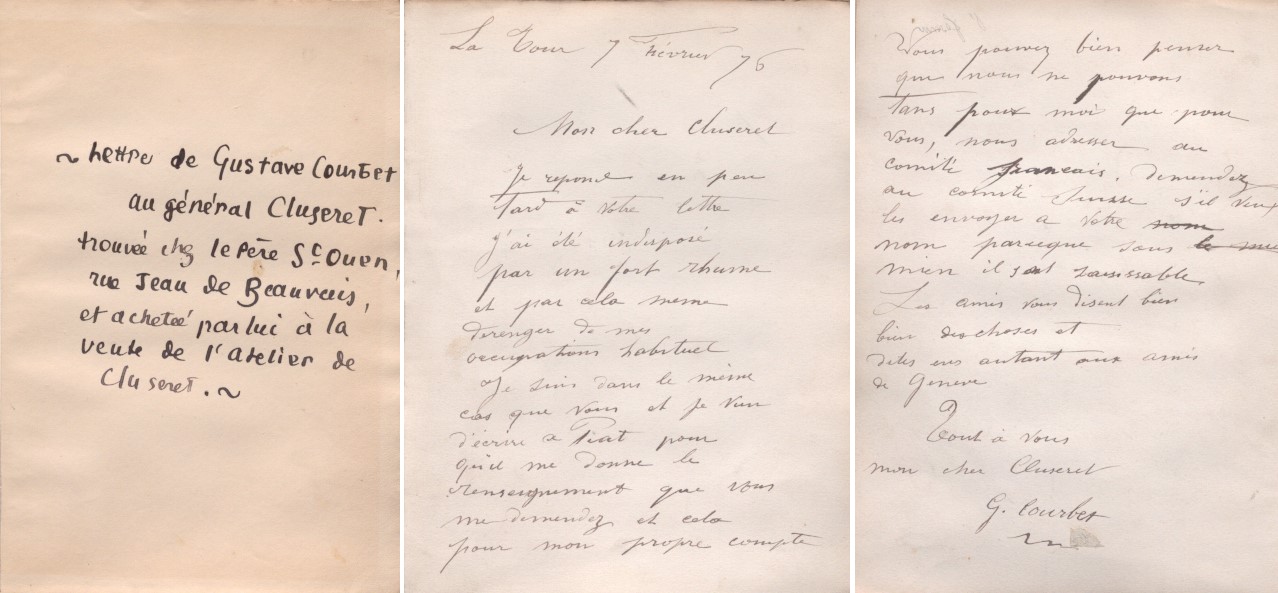 ~ Lettre de Gustave Courbet
au général Cluseret.
trouvée chz le Père St Ouen,
rue Jean de Beauvais,
et acheteé par lui à la
vente de l'atelier de
Cluseret. ~
La Tour 7 Février 76
Mon cher Cluseret
Je repond en peu
tard à votre lettre
j'ai été indisposé
par un fort rhume
et par cela meme
derenger de mes
occupations habituel
Je suis dans le même
cas que vous et je vien
d'écrire a Piat pour
qu'il me donne le
renseignement que vous
me demendez et cela
pour mon propre compte
Vous pouvez bien penser
que nous ne pouvons
tans pour moi que pour
vous, nous adresser au
comité francais. demendez
au comité Suisse s'il veux
les envoyer a votre nom
nom parceque sous le mie
mien il sont saisissable,
Les amis vous disent bien
bien des choses et
dites ens autant aux amis
de Geneve
Tout à vous
mon cher Cluseret
G. Courbet